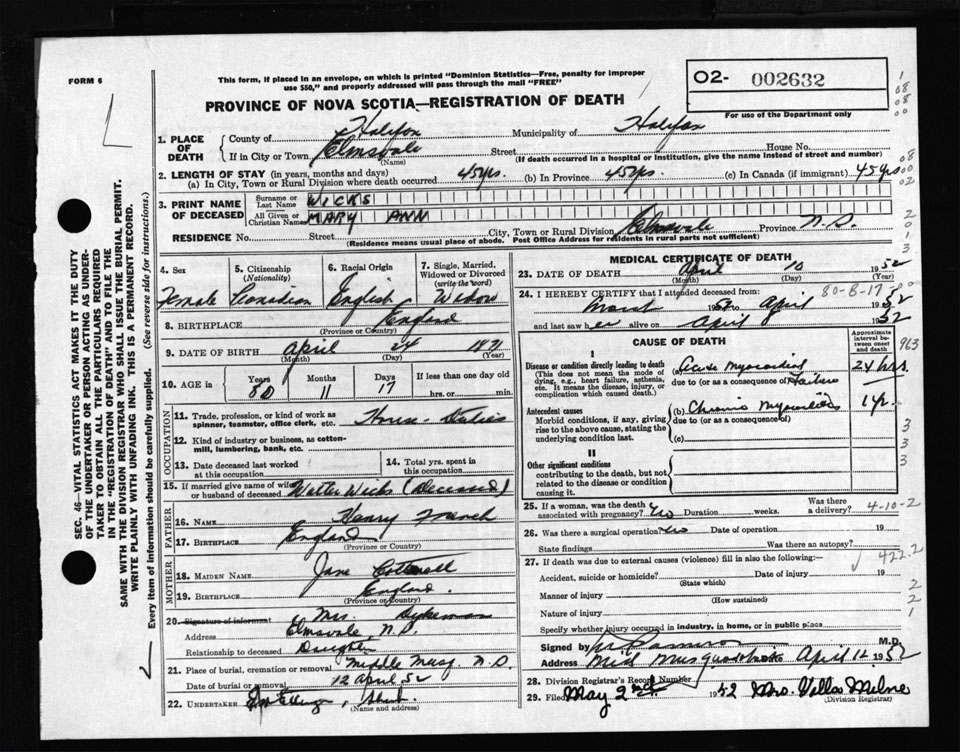 FORM 6
This form, if placed in an envelope, on which is printed "Dominion Statistics—Free, penalty for improper
use $50," and properly addressed will pass through the mail "FREE"
O2- 002632
For use of the Department only
PROVINCE OF NOVA SCOTIA—REGISTRATION OF DEATH
1. PLACE OF DEATH County of Halifax Municipality of Halifax
If in City or Town Elmsvale (Name) Street House No.
(If death occurred in a hospital or institution, give the name instead of street and number)
2. LENGTH OF STAY (in years, months and days)
(a) In City, Town or Rural Division where death occurred 45 yrs. (b) In Province 45 yrs. (c) In Canada (if immigrant) 45 yrs
3. PRINT NAME OF DECEASED Surname or Last Name WICKS
All Given or Christian Names MARY ANN
RESIDENCE No. Street City, Town or Rural Division Elmsvale Province N.S.
(Residence means usual place of abode. Post Office Address for residents in rural parts not sufficient)
4. Sex Female
5. Citizenship (Nationality) Canadian
6. Racial Origin English
7. Single, Married, Widowed or Divorced (write the word) Widow
8. BIRTHPLACE England
(Province or Country)
9. DATE OF BIRTH April 24 1871
(Month) (Day) (Year)
10. AGE in Years 80 Months 11 Days 17 If less than one day
hrs. or min.
OCCUPATION
11. Trade, profession, or kind of work as
spinner, teamster, office clerk, etc. House-Duties
12. Kind of industry or business, as cotton-
mill, lumbering, bank, etc.
13. Date deceased last worked
at this occupation
14. Total yrs. spent in
this occupation
15. If married give name of wife
or husband of deceased Walter Wicks (Deceased)
FATHER
16. NAME Henry French
17. BIRTHPLACE England
(Province or Country)
MOTHER
18. MAIDEN NAME Jane
19. BIRTHPLACE England
(Province or Country)
20. Signature of informant Mrs. Dykeman
Address Elmsvale, N.S.
Relationship to deceased Daughter
21. Place of burial, cremation or removal Middle Musq. N.S.
Date of burial or removal 12 April 52
22. UNDERTAKER
(Name and address)
MEDICAL CERTIFICATE OF DEATH
23. DATE OF DEATH April 10 1952
(Month) (Day) (Year)
80-8-17
24. I HEREBY CERTIFY that I attended deceased from:
March 1952 to April 1952
and last saw her alive on April 1952
CAUSE OF DEATH
Approximate
interval be-
tween onset
and death
I
Disease or condition directly leading to death
(This does not mean the mode of
dying, e.g., heart failure, asthenia,
etc. It means the disease, injury, or
complication which caused death.)
Acute Myocardial
due to (or as a consequence of) Failure
24 hrs.
Antecedent causes
Morbid conditions, if any, giving
rise to the above cause, stating the
underlying condition last.
(b) Chronic Myocarditis
due to (or as a consequence of)
1 yr.
(c)
II
Other significant conditions
contributing to the death, but not
related to the disease or condition
causing it.
25. If a woman, was the death
associated with pregnancy? No Duration weeks. Was there
a delivery?
4-10-2
26. Was there a surgical operation? No Date of operation 19
State findings Was there an autopsy?
422.2
27. If death was due to external causes (violence) fill in also the following:—
Accident, suicide or homicide? Date of injury 19
(State which)
Manner of injury
(How sustained)
Nature of injury
Specify whether injury occurred in industry, in home, or in public place
Signed by M.D.
Address Mid Musquodoboit April 12 1952
28. Division Registrar's Record Number
29. Filed May 2nd 1952 Mrs. Villa Milne
(Division Registrar)
SEC. 46—VITAL STATISTICS ACT MAKES IT THE DUTY
OF THE UNDERTAKER OR PERSON ACTING AS UNDER-
TAKER TO OBTAIN ALL THE PARTICULARS REQUIRED
IN THE "REGISTRATION OF DEATH" AND TO FILE THE
SAME WITH THE DIVISION REGISTRAR WHO SHALL ISSUE THE BURIAL PERMIT.
WRITE PLAINLY WITH UNFADING INK. THIS IS A PERMANENT RECORD.
Every item of information should be carefully supplied. (See reverse side for instructions.)